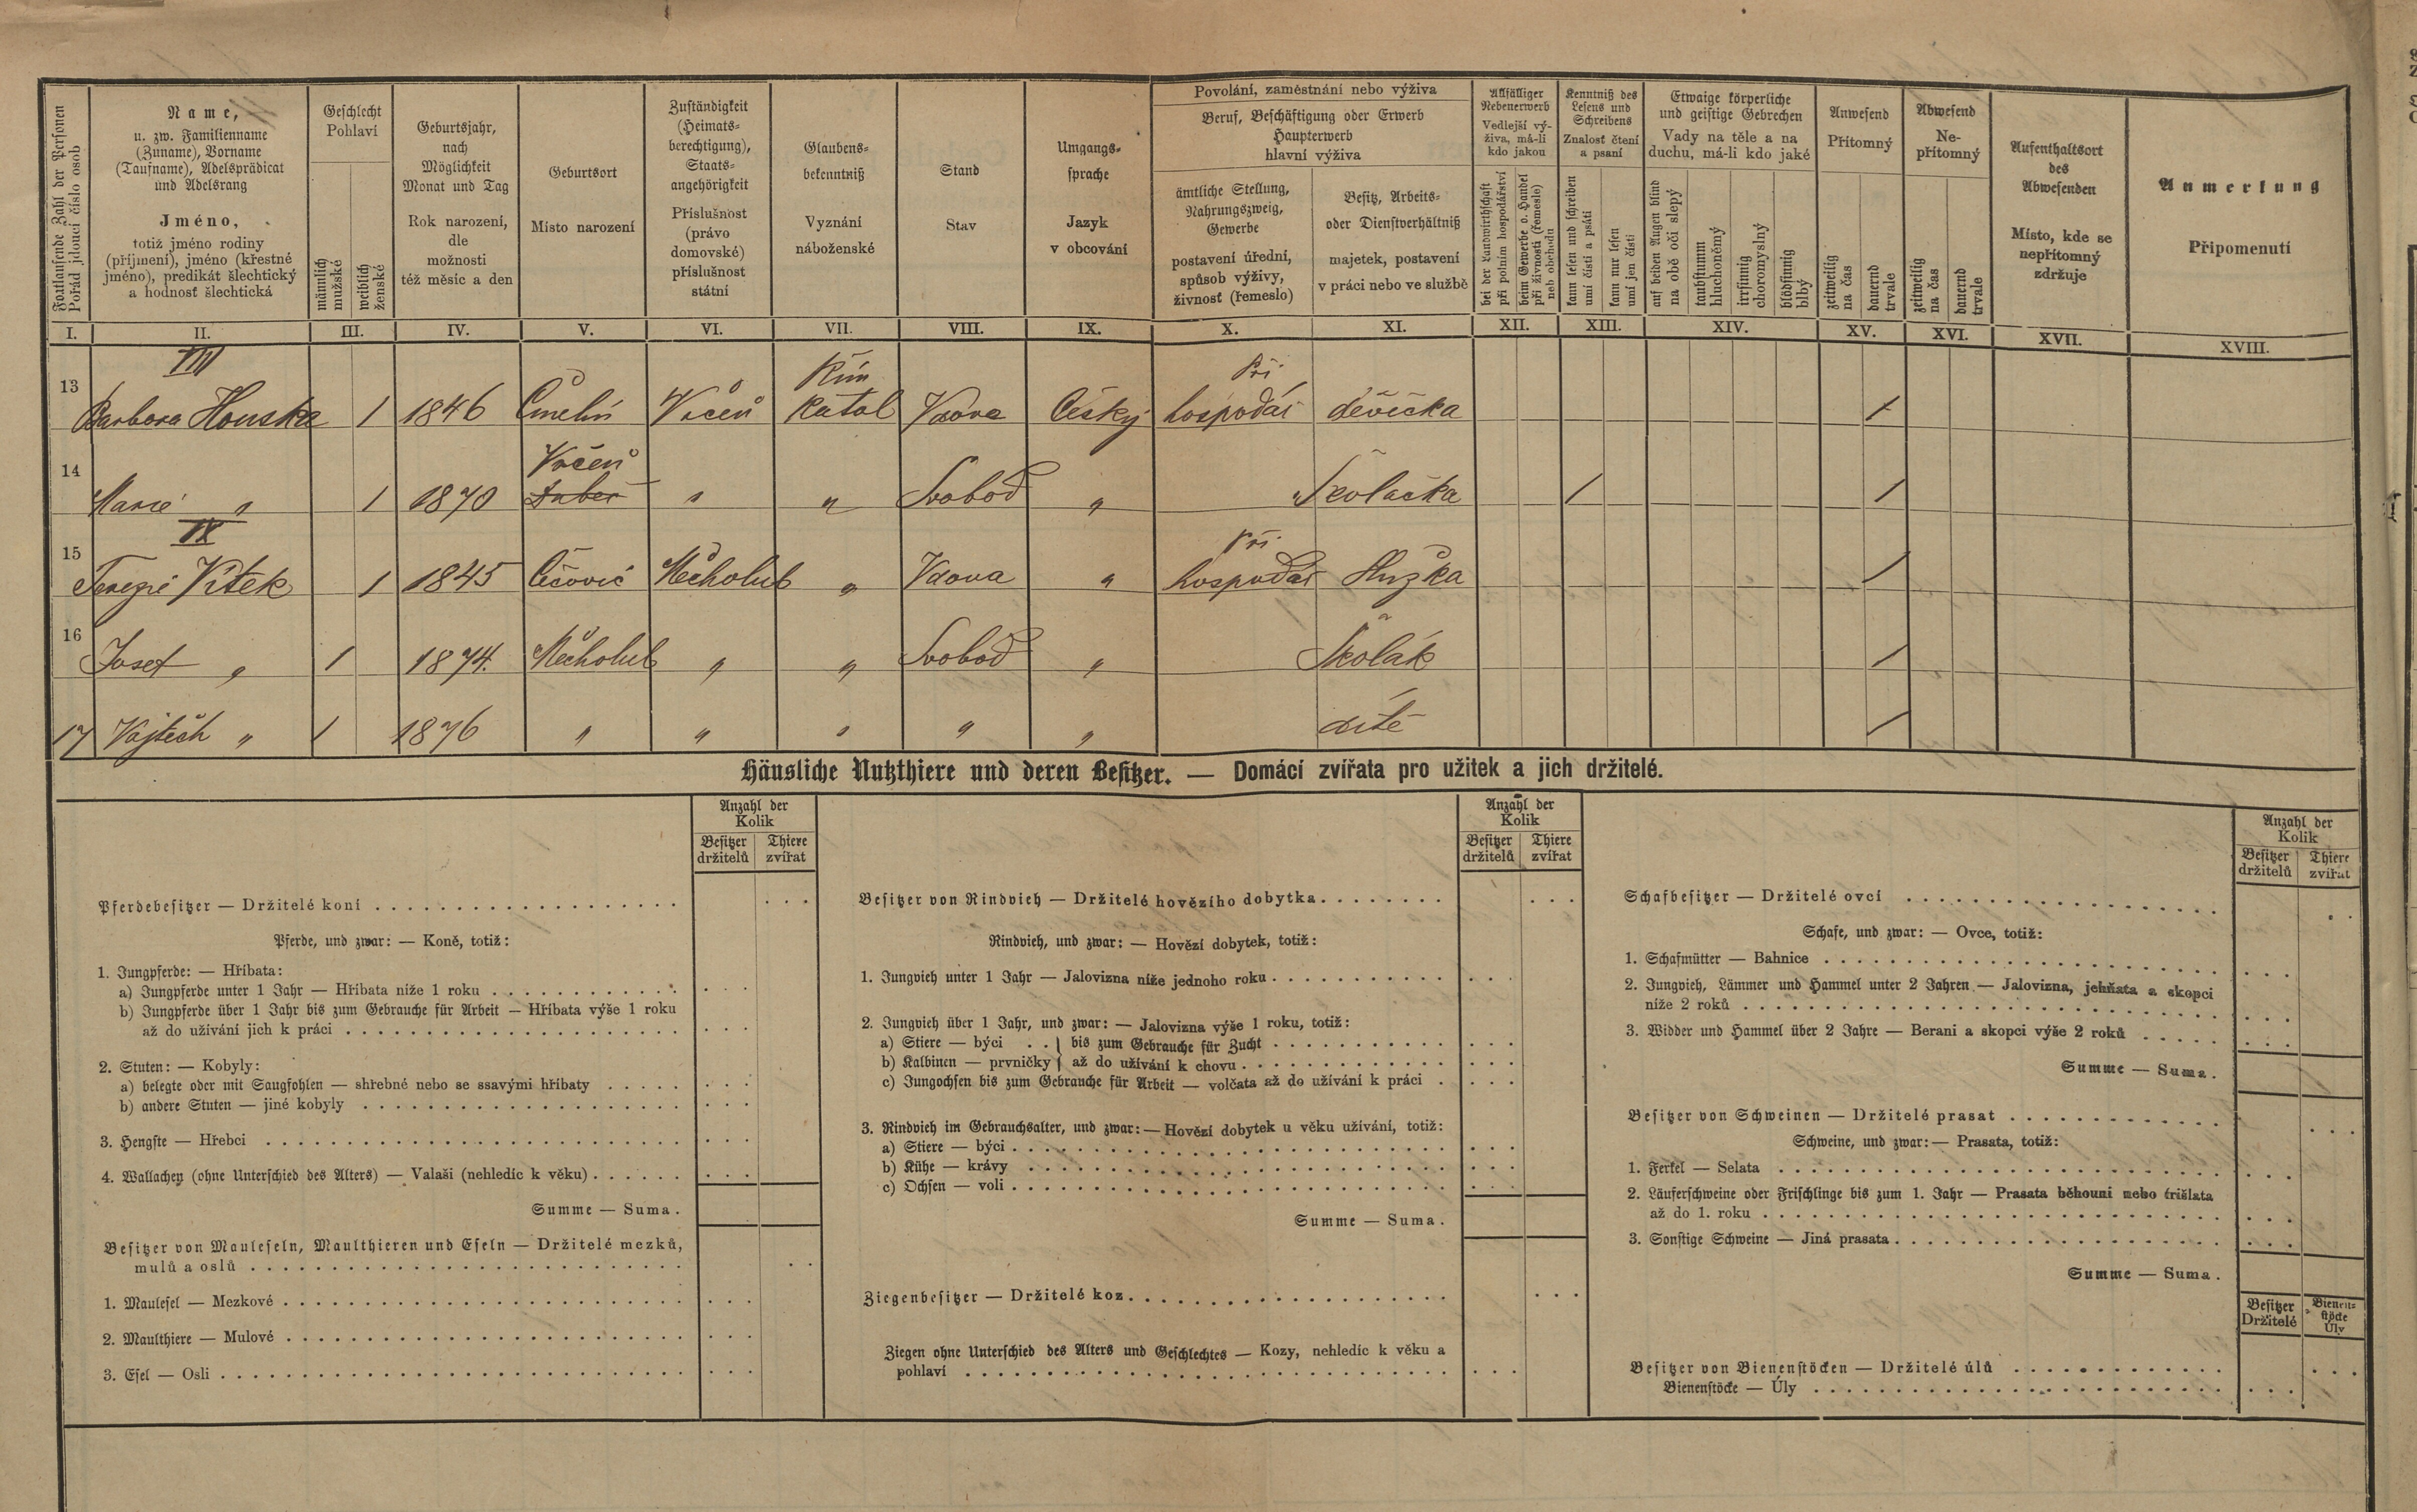 Fortlaufende Zahl der Personen
Pořád jdoucí číslo osob
Name,
u. zw. Familienname
(Zuname), Vorname
(Taufname), Adelsprädicat
und Adelsrang
Jméno,
totiž jméno rodiny
(příjmení), jméno (křestné
jméno), predikát šlechtický
a hodnost šlechtická
Geschlecht
Pohlaví
männlich
mužské
weiblich
ženské
Geburtsjahr,
nach
Möglichkeit
Monat und Tag
Rok narození,
dle
možnosti
též měsíc a den
Geburtsort
Místo narození
Zuständigkeit
(Heimats-
berechtigung),
Staats-
angehörigkeit
Příslušnost
(právo
domovské)
příslušnost
státní
Glaubens-
bekenntniß
Vyznání
náboženské
Stand
Stav
Umgangs-
sprache
Jazyk
v obcování
Povolání, zaměstnání nebo výživa
Beruf, Beschäftigung oder Erwerb
Haupterwerb
hlavní výživa
ämtliche Stellung,
Nahrungszweig,
Gewerbe
postavení úřední,
spůsob výživy,
živnost (řemeslo)
Besitz, Arbeits-
oder Dienstverhältniß
majetek, postavení
v práci nebo ve službě
Allfälliger
Nebenerwerb
Vedlejší vý-
živa, má-li
kdo jakou
bei der Landwirthschaft
při polním hospodářství
beim Gewerbe o. Handel
při živnosti (řemesle)
neb obchodu
Kenntniß des
Lesens und
Schreibens
Znalost čtení
a psaní
kann lesen und schreiben
umí čísti a psáti
kann nur lesen
umí jen čísti
Etwaige körperliche
und geistige Gebrechen
Vady na těle a na
duchu, má-li kdo jaké
auf beiden Augen blind
na obě oči slepý
taubstumm
hluchoněmý
irrsinnig
choromyslný
blödsinnig
blbý
Anwesend
Přítomný
zeitweilig
na čas
dauernd
trvale
Abwesend
Ne-
přítomný
zeitweilig
na čas
dauernd
trvale
Aufenthaltsort
des
Abwesenden
Místo, kde se
nepřítomný
zdržuje
Anmerkung
Připomenutí
I. II. III. IV. V. VI. VII. VIII. IX. X. XI. XII. XIII. XIV. XV. XVI. XVII. XVIII.
VIII Řím Při
13 Barbora Houska 1 1846 Čmelín Vrčeň Katol Vdova Český hospodář děvečka /
Vrčeň
14 Marie " 1 1870 " " Svobod " Školačka / /
IX Při
15 Terezie Vítek 1 1845 Čičovic Měcholub " Vdova " hospodář Služka /
16 Josef " 1 1874. Měcholub " " Svobod " Školák /
17 Vojtěch " 1 1876 " " " " " dítě /
Häusliche Nutzthiere und deren Besitzer. — Domácí zvířata pro užitek a jich držitelé.
Anzahl der
Kolik
Besitzer
držitelů
Thiere
zvířat
Pferdebesitzer — Držitelé koní
Pferde, und zwar: — Koně, totiž:
1. Jungpferde: — Hříbata:
a) Jungpferde unter 1 Jahr — Hříbata níže 1 roku
b) Jungpferde über 1 Jahr bis zum Gebrauche für Arbeit — Hříbata výše 1 roku
až do užívání jich k práci
2. Stuten: — Kobyly:
a) belegte oder mit Saugfohlen — shřebné nebo se ssavými hříbaty
b) andere Stuten — jiné kobyly
3. Hengste — Hřebci
4. Wallachen (ohne Unterschied des Alters) — Valaši (nehledíc k věku)
Summe — Suma.
Besitzer von Mauleseln, Maulthieren und Eseln — Držitelé mezků,
mulů a oslů
1. Maulesel — Mezkové
2. Maulthiere — Mulové
3. Esel — Osli
Anzahl der
Kolik
Besitzer
držitelů
Thiere
zvířat
Besitzer von Rindvieh — Držitelé hovězího dobytka
Rindvieh, und zwar: — Hovězí dobytek, totiž:
1. Jungvieh unter 1 Jahr — Jalovizna níže jednoho roku
2. Jungvieh über 1 Jahr, und zwar: — Jalovizna výše 1 roku, totiž:
a) Stiere — býci . . } bis zum Gebrauche für Zucht
b) Kalbinen — prvničky } až do užívání k chovu
c) Jungochsen bis zum Gebrauche für Arbeit — volčata až do užívání k práci
3. Rindvieh im Gebrauchsalter, und zwar: — Hovězí dobytek u věku užívání, totiž:
a) Stiere — býci
b) Kühe — krávy
c) Ochsen — voli
Summe — Suma.
Ziegenbesitzer — Držitelé koz
Ziegen ohne Unterschied des Alters und Geschlechtes — Kozy, nehledíc k věku a
pohlaví
Anzahl der
Kolik
Besitzer
držitelů
Thiere
zvířat
Schafbesitzer — Držitelé ovcí
Schafe, und zwar: — Ovce, totiž:
1. Schafmütter — Bahnice
2. Jungvieh, Lämmer und Hammel unter 2 Jahren — Jalovizna, jehňata a skopci
níže 2 roků
3. Widder und Hammel über 2 Jahre — Berani a skopci výše 2 roků
Summe — Suma.
Besitzer von Schweinen — Držitelé prasat
Schweine, und zwar: — Prasata, totiž:
1. Ferkel — Selata
2. Läuferschweine oder Frischlinge bis zum 1. Jahr — Prasata běhouni nebo frišlata
až do 1. roku
3. Sonstige Schweine — Jiná prasata
Summe — Suma.
Besitzer
Držitelé
Bienen-
stöcke
Úly
Besitzer von Bienenstöcken — Držitelé úlů
Bienenstöcke — Úly